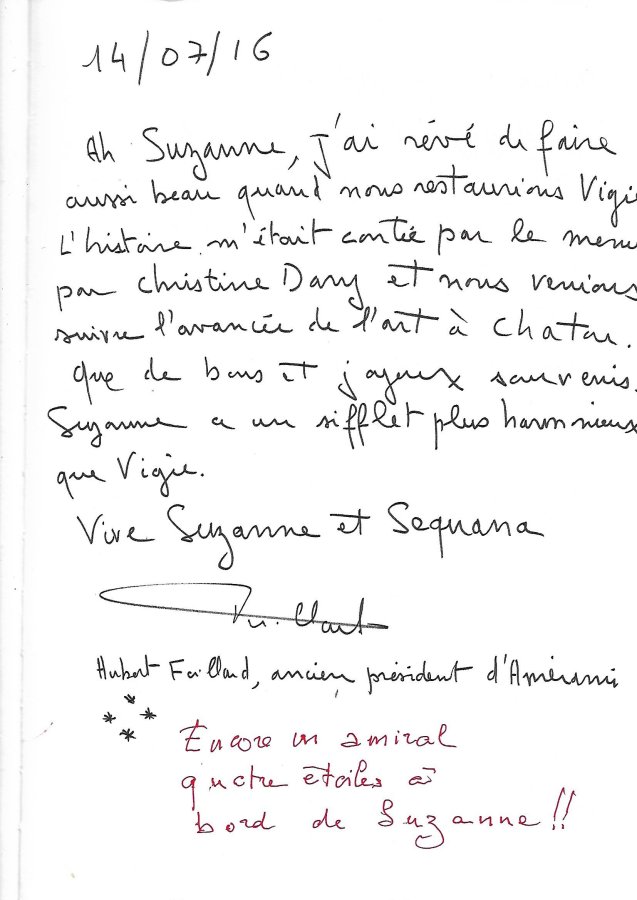 14/07/16
Ah Suzanne, j'ai rêvé de faire
aussi beau quand nous restaurions Vigie
L'histoire m'était contée par le menu
par Christine Dary et nous venions
suivre l'avancée de l'art à Chatou.
Que de bons et joyeux souvenirs.
Suzanne a un sifflet plus harmonieux
que Vigie.
Vive Suzanne et Sequana
Hubert Foillard, ancien président d'Amérami
Encore un amiral
quatre étoiles à
bord de Suzanne !!